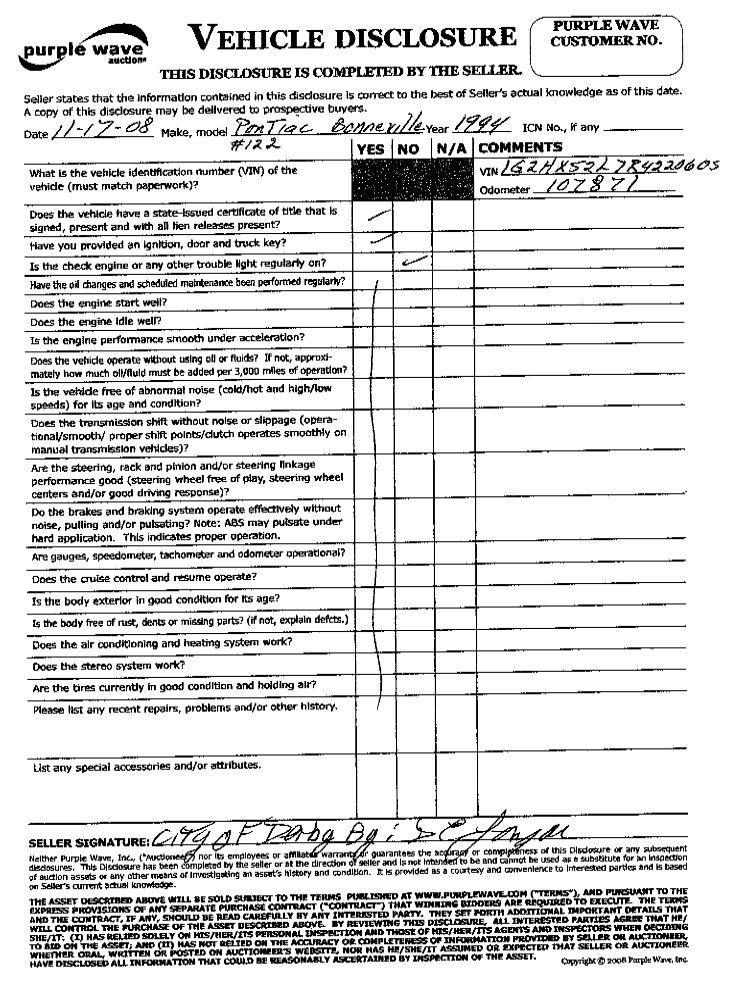 purple wave
auction®
VEHICLE DISCLOSURE
PURPLE WAVE
CUSTOMER NO.
THIS DISCLOSURE IS COMPLETED BY THE SELLER.
Seller states that the information contained in this disclosure is correct to the best of Seller's actual knowledge as of this date.
A copy of this disclosure may be delivered to prospective buyers.
Date 11-17-08 Make, model Pontiac Bonneville Year 1994 ICN No., if any
#122
YES NO N/A COMMENTS
What is the vehicle identification number (VIN) of the
vehicle (must match paperwork)?
VIN 1G2HX52L7R4220605
Odometer 107871
Does the vehicle have a state-issued certificate of title that is
signed, present and with all lien releases present?
Have you provided an ignition, door and truck key?
Is the check engine or any other trouble light regularly on?
Have the oil changes and scheduled maintenance been performed regularly?
Does the engine start well?
Does the engine idle well?
Is the engine performance smooth under acceleration?
Does the vehicle operate without using oil or fluids? If not, approxi-
mately how much oil/fluid must be added per 3,000 miles of operation?
Is the vehicle free of abnormal noise (cold/hot and high/low
speeds) for its age and condition?
Does the transmission shift without noise or slippage (opera-
tional/smooth/ proper shift points/clutch operates smoothly on
manual transmission vehicles)?
Are the steering, rack and pinion and/or steering linkage
performance good (steering wheel free of play, steering wheel
centers and/or good driving response)?
Do the brakes and braking system operate effectively without
noise, pulling and/or pulsating? Note: ABS may pulsate under
hard application. This indicates proper operation.
Are gauges, speedometer, tachometer and odometer operational?
Does the cruise control and resume operate?
Is the body exterior in good condition for its age?
Is the body free of rust, dents or missing parts? (if not, explain defcts.)
Does the air conditioning and heating system work?
Does the stereo system work?
Are the tires currently in good condition and holding air?
Please list any recent repairs, problems and/or other history.
List any special accessories and/or attributes.
SELLER SIGNATURE: City of Derby By:
Neither Purple Wave, Inc., ("Auctioneer") nor its employees or affiliates warranty or guarantees the accuracy or completeness of this Disclosure or any subsequent
disclosures. This Disclosure has been completed by the seller or at the direction of seller and is not intended to be and cannot be used as a substitute for an inspection
of auction assets or any other means of investigating an asset's history and condition. It is provided as a courtesy and convenience to interested parties and is based
on Seller's current actual knowledge.
THE ASSET DESCRIBED ABOVE WILL BE SOLD SUBJECT TO THE TERMS PUBLISHED AT WWW.PURPLEWAVE.COM ("TERMS"), AND PURSUANT TO THE
EXPRESS PROVISIONS OF ANY SEPARATE PURCHASE CONTRACT ("CONTRACT") THAT WINNING BIDDERS ARE REQUIRED TO EXECUTE. THE TERMS
AND THE CONTRACT, IF ANY, SHOULD BE READ CAREFULLY BY ANY INTERESTED PARTY. THEY SET FORTH ADDITIONAL IMPORTANT DETAILS THAT
WILL CONTROL THE PURCHASE OF THE ASSET DESCRIBED ABOVE. BY REVIEWING THIS DISCLOSURE, ALL INTERESTED PARTIES AGREE THAT HE/
SHE/IT: (I) HAS RELIED SOLELY ON HIS/HER/ITS PERSONAL INSPECTION AND THOSE OF HIS/HER/ITS AGENTS AND INSPECTORS WHEN DECIDING
TO BID ON THE ASSET; AND (II) HAS NOT RELIED ON THE ACCURACY OR COMPLETENESS OF INFORMATION PROVIDED BY SELLER OR AUCTIONEER,
WHETHER ORAL, WRITTEN OR POSTED ON AUCTIONEER'S WEBSITE, NOR HAS HE/SHE/IT ASSUMED OR EXPECTED THAT SELLER OR AUCTIONEER
HAVE DISCLOSED ALL INFORMATION THAT COULD BE REASONABLY ASCERTAINED BY INSPECTION OF THE ASSET. Copyright © 2008 Purple Wave, Inc.